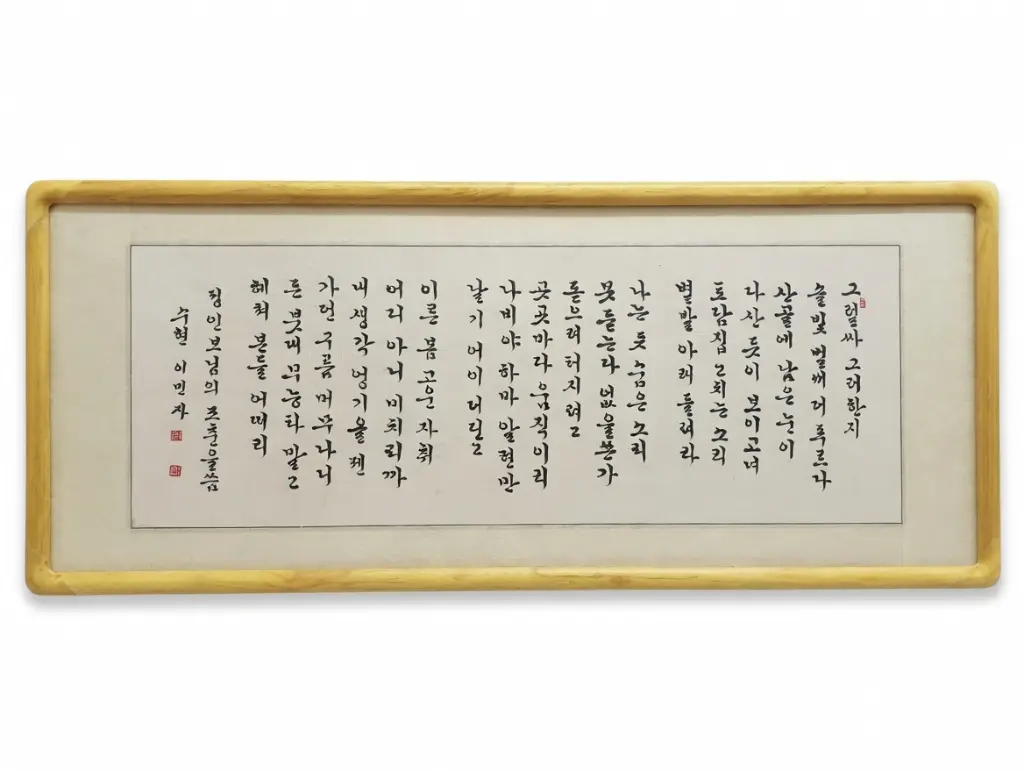 그럴싸 그러한지
솔빛 벌써 더 푸르다
산골에 남은 눈이
다산 듯이 보이고녀
토담집 고치는 소리
볕발 아래 들려라
나는 듯 숨은 소리
못 듣는다 없을쏜가
돋으려 터지려고
곳곳마다 움직이리
나비야 하마 알련만
날기 어이 더딘고
이른 봄 고운 자취
어디 아니 미치리까
내 생각 엉기올 젠
가던 구름 머무나니
든 붓대 무능타 말고
헤쳐 본들 어떠리
정인보님의 조춘을 씀
수현 이민자